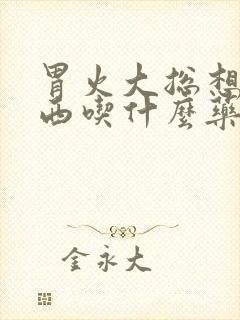 胃火大総想
西喫什麼藥
金永大